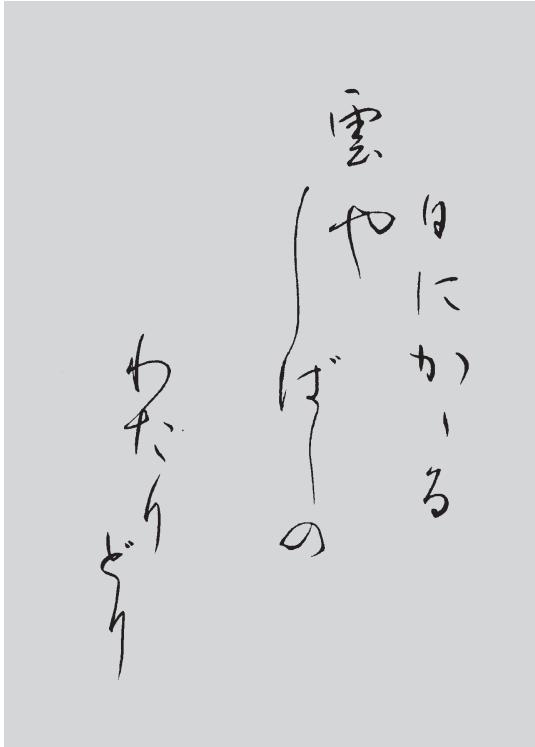 日にかゝる
雲や
しばしの
わたりどり